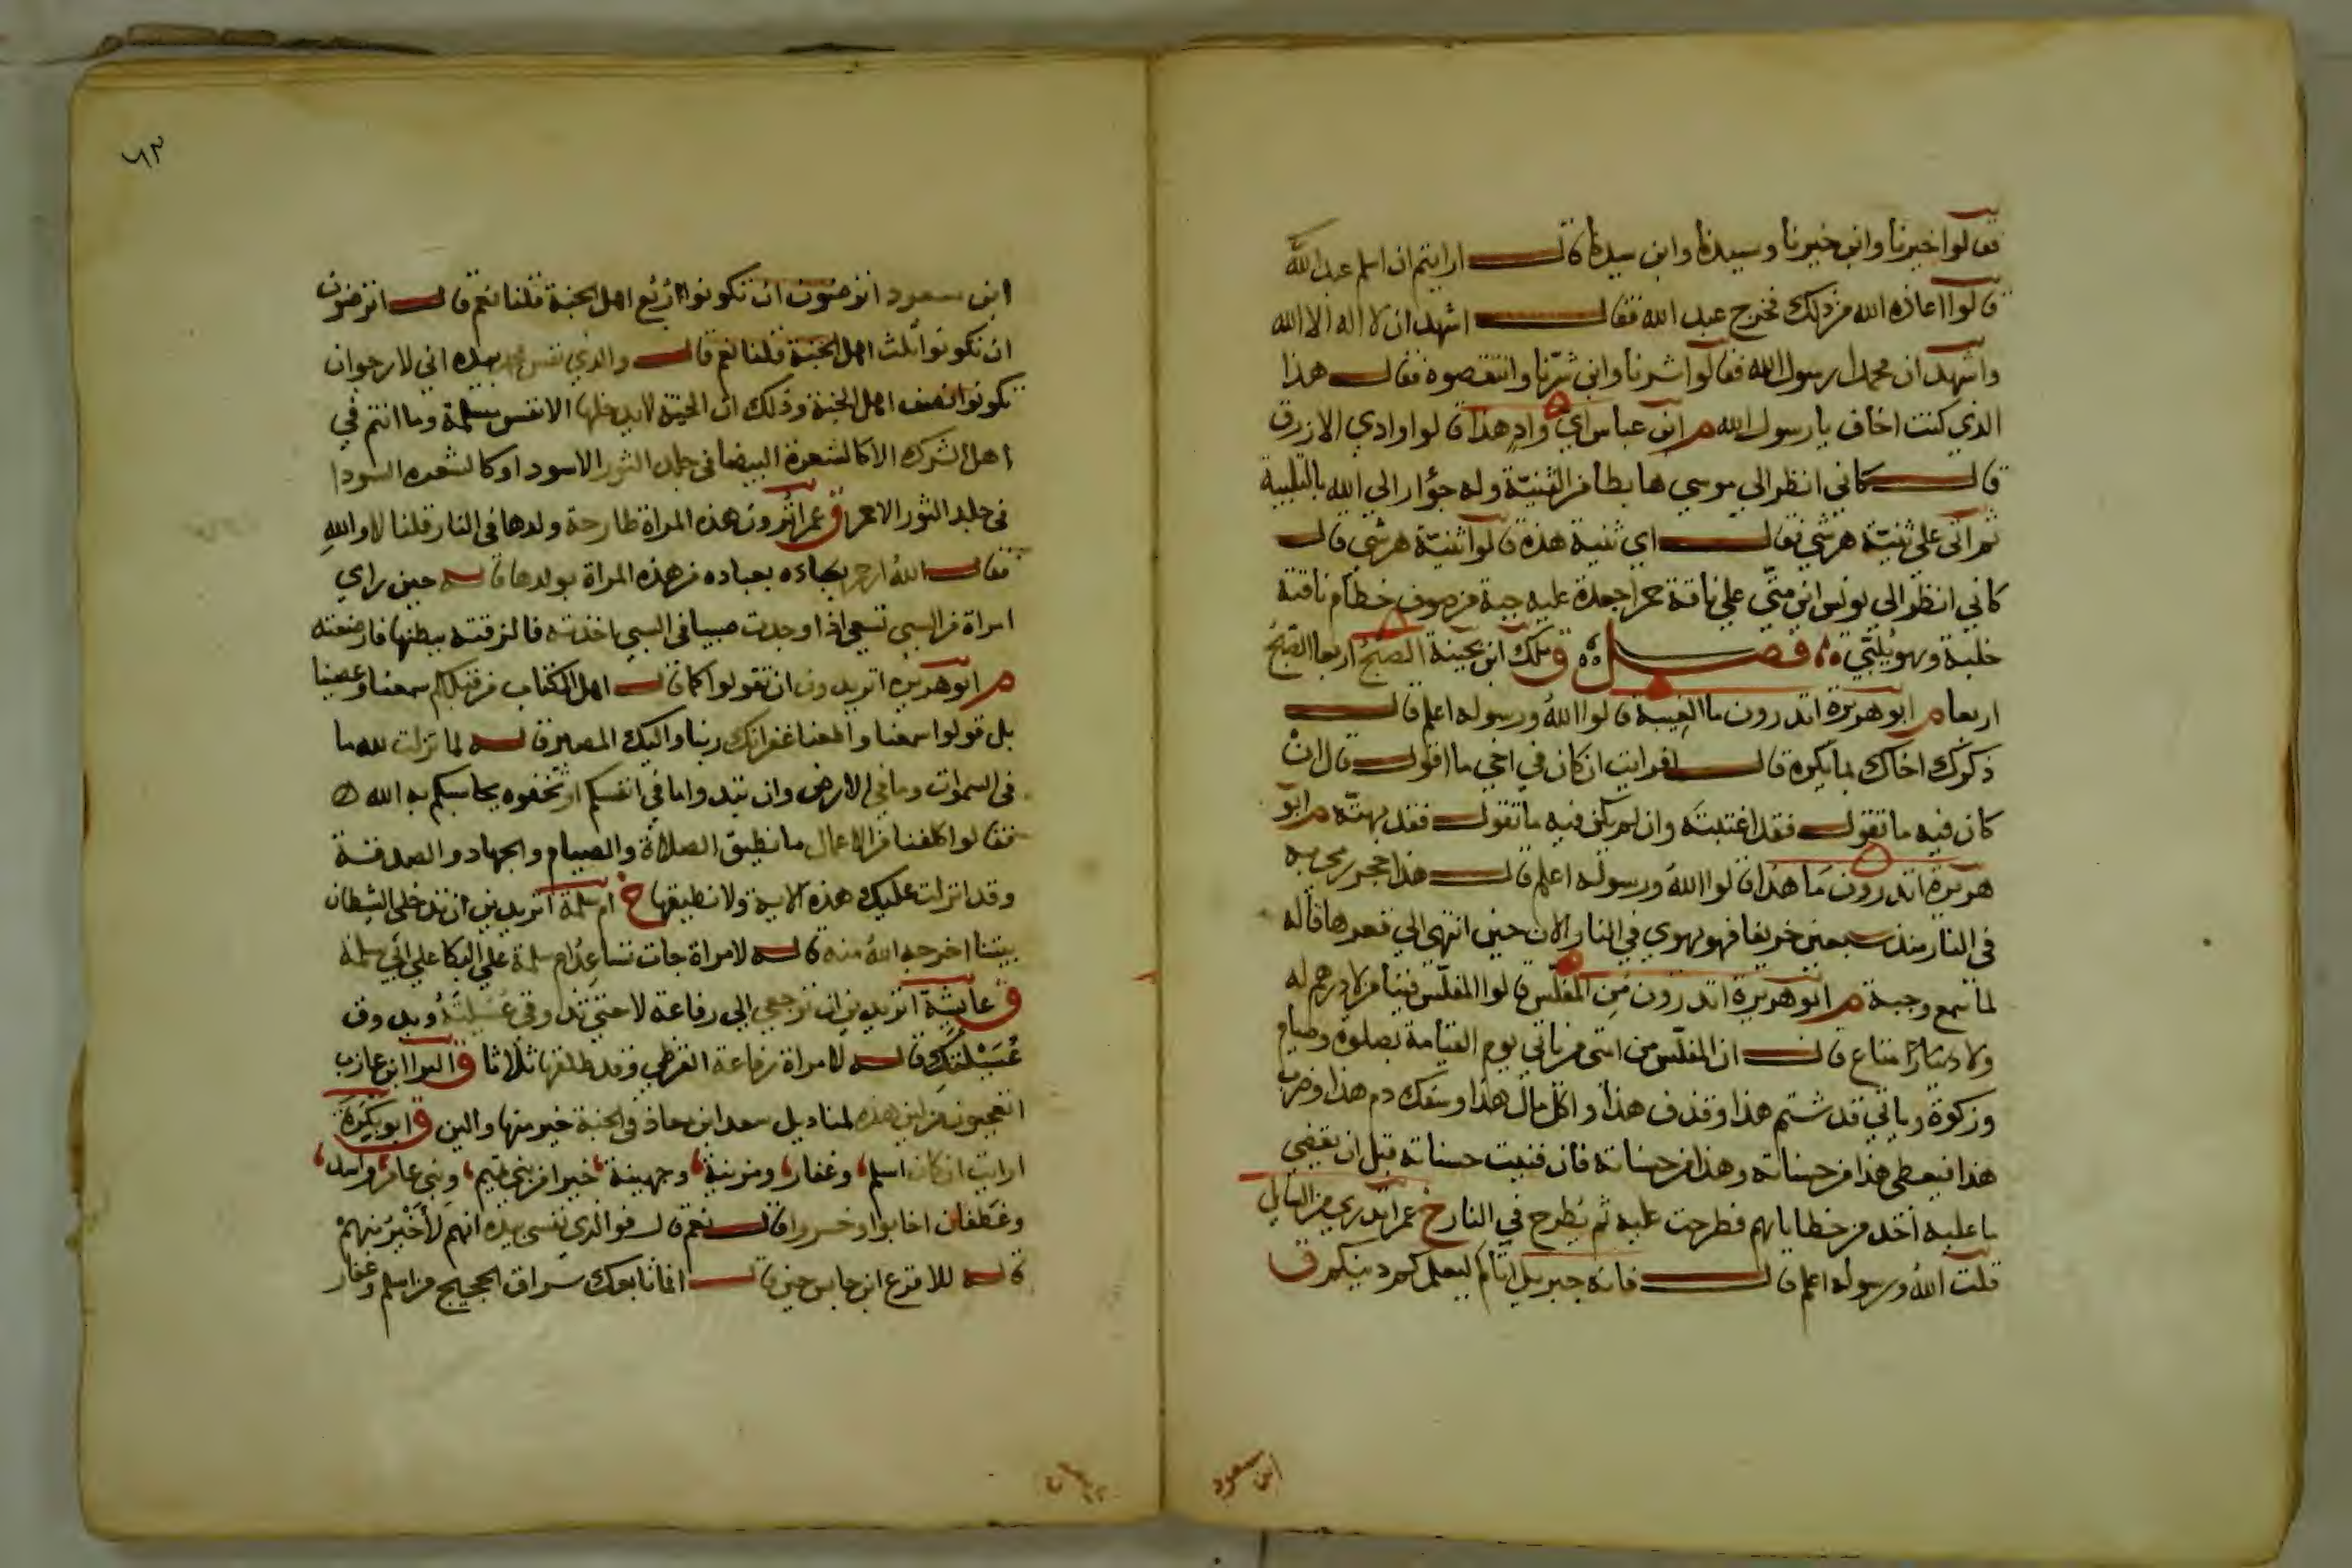 فقالوا خيرنا وابن خيرنا وسيدنا وابن سيدنا قال ارايتم ان اسلم عبد الله
قالوا اعاذه الله من ذلك فخرج عبد الله فقال اشهد ان لا اله الا الله
واشهد ان محمدا رسول الله فقالوا شرنا وابن شرنا وانتقصوه فقال هذا
الذي كنت اخاف يا رسول الله م ابن عباس اي واد هذا قالوا وادي الازرق
قال كاني انظر الي موسي هابطا من الثنية وله جؤار الي الله بالتلبية
ثم اتى على ثنية هرشي فقال اي ثنية هذه قالوا ثنية هرشي قال
كاني انظر الي يونس ابن متي علي ناقة حمرا جعدة عليه جبة من صوف خطام ناقته
خلبة وهو يلبي فصل ق ملك ابن بحينة الصبح اربعا الصبح
اربعا م ابو هريرة اتدرون ما الغيبة قالوا الله ورسوله اعلم قال
ذكرك اخاك بما يكره قال افرايت ان كان في اخي ما اقول قال ان
كان فيه ما تقول فقد اغتبته وان لم يكن فيه ما تقول فقد بهته م ابو
هريرة اتدرون ما هذا قالوا الله ورسوله اعلم قال هذا حجر رمي به
في النار منذ سبعين خريفا فهو يهوي في النار الان حين انتهي الي قعرها قاله
لما سمع وجبة م ابو هريرة اتدرون من المفلس قالوا المفلس فينا من لا درهم له
ولا متاع قال ان المفلس من امتي من ياتي يوم القيامة بصلوة وصيام
وزكوة وياتي قد شتم هذا وقذف هذا واكل مال هذا وسفك دم هذا وضرب
هذا فيعطي هذا من حسناته وهذا من حسناته فان فنيت حسناته قبل ان يقضي
ما عليه اخذ من خطاياهم فطرحت عليه ثم يطرح في النار خ عمر اتدري من السايل
قلت الله ورسوله اعلم قال فانه جبريل اتاكم ليعلمكم دينكم ق
ابن سعود
٦٣
ابن سعود اترضون ان تكونوا اربع اهل الجنة قلنا نعم قال اترضون
ان تكونوا ثلث اهل الجنة قلنا نعم قال والذي نفس محمد بيده اني لارجو ان
تكونوا نصف اهل الجنة وذلك ان الجنة لا يدخلها الا نفس مسلمة وما انتم في
اهل الشرك الا كالشعرة البيضا في جلد الثور الاسود او كالشعره السودا
في جلد الثور الاحمر ق عمر اترون هذه المراة طارحة ولدها في النار قلنا لا والله
فقال الله ارحم بعباده من هذه المراة بولدها قاله حين راي
امراة من السبي تسعي اذا وجدت صبيا في السبي اخذته فالزقته ببطنها فارضعته
م ابو هريرة اتريدون ان تقولوا كما قال اهل الكتاب من قبلكم سمعنا وعصينا
بل قولوا سمعنا واطعنا غفرانك ربنا واليك المصير قاله لما نزلت لله ما
في السموات وما في الارض وان تبدوا ما في انفسكم او تخفوه يحاسبكم به الله
فقالوا كلفنا من الاعمال ما نطيق الصلاة والصيام والجهاد والصدقة
وقد انزلت عليك هذه الاية ولا نطيقها خ ام سلمة اتريدين ان تدخلي الشيطان
بيتا اخرجه الله منه قاله لامراة جات تساعد ام سلمة علي البكا علي ابي سلمة
ق عايشة اتريدين ان ترجعي الي رفاعة لا حتي تذوقي عسيلته ويذوق
عسيلتك قاله لامراة رفاعة القرظي وقد طلقها ثلاثا ق البرا ابن عازب
اتعجبون من لين هذه لمناديل سعد ابن معاذ في الجنة خير منها والين ق ابو بكرة
ارايت ان كان اسلم وغفار ومزينة وجهينة خيرا من بني تميم وبني عامر واسد
وغطفان اخابوا وخسروا قال نعم قال فوالذي نفسي بيده انهم لاخير منهم
قاله للاقرع ابن حابس حين قال انما تابعك سراق الحجيج من اسلم وغفار